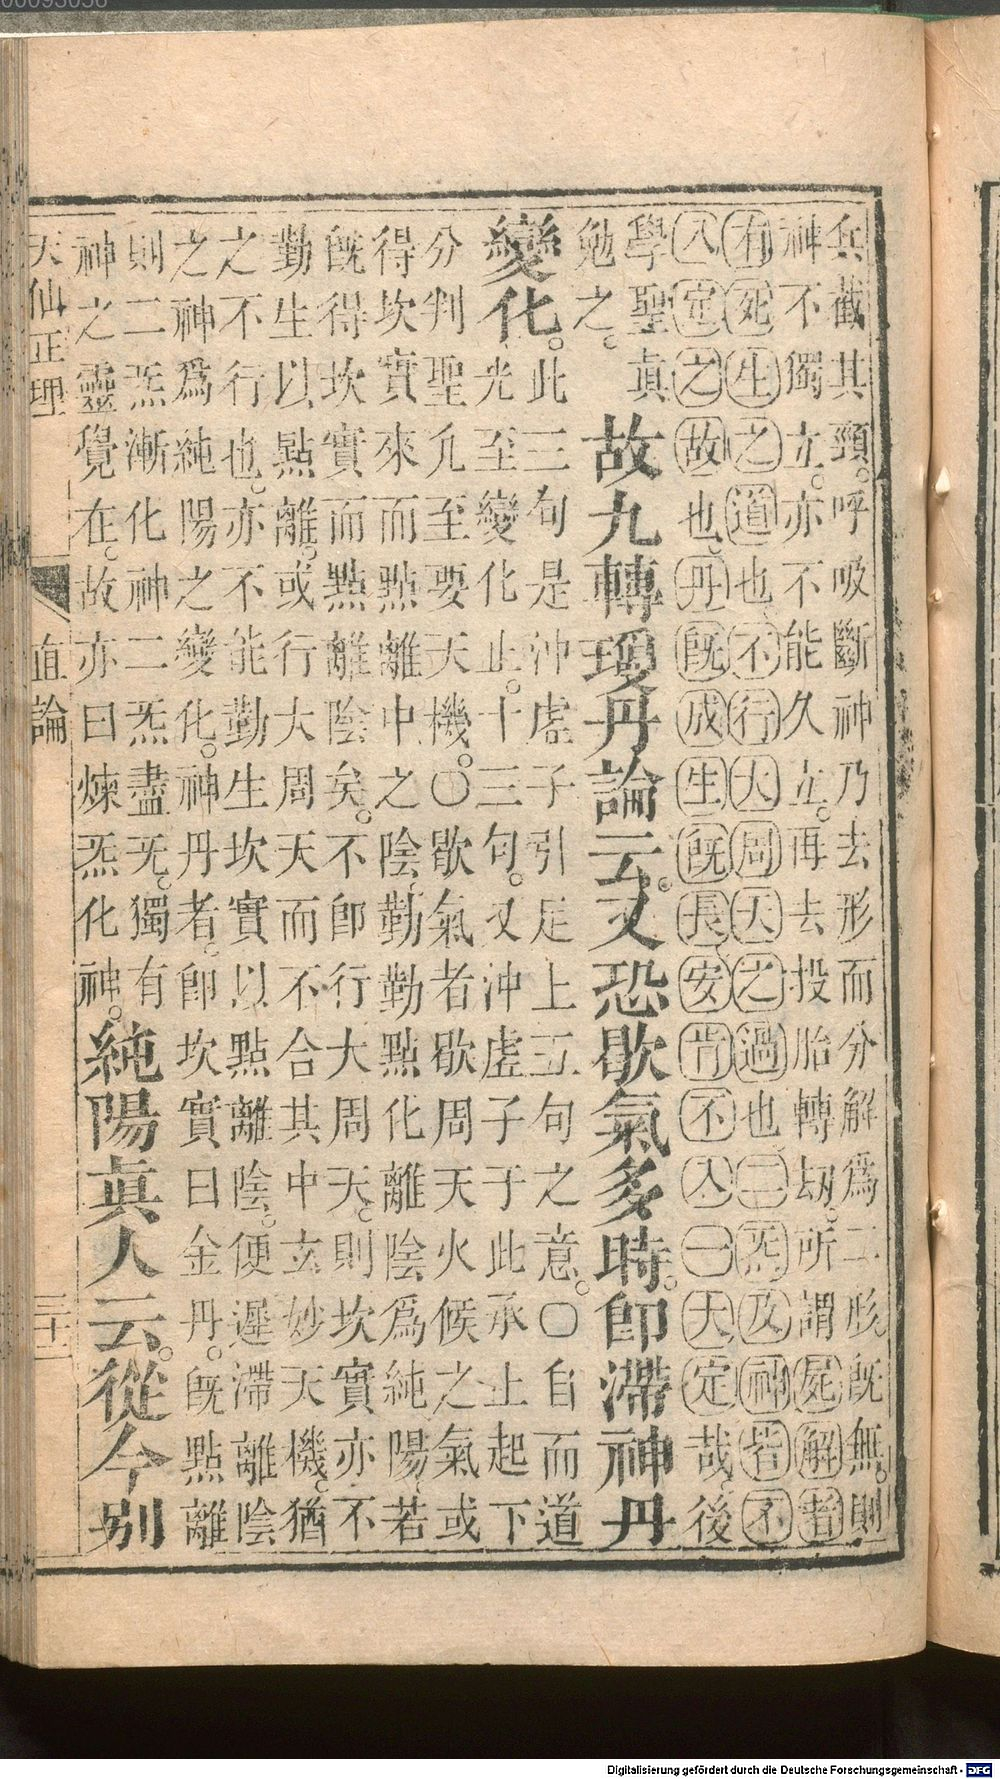 兵截其頸。呼吸斷神乃去形而分解爲二形旣無。則
神不獨立。亦不能久立。再去投胎轉劫。所謂屍解者
有死生之道也、不行大周天之過也、二炁及神皆不
入定之故也、丹旣成生旣長安肯不入一大定哉、後
學聖真
勉之。
故九轉瓊丹論云。又恐歇氣多時。卽滯神丹
變化。
此三句是沖虛子引足上五句之意。○自而道
光至變化止。十三句。又沖虛子于此承上起下
分判聖凡至要天機。○歇氣者歇周天火候之氣或
得坎實來而點離中之陰、勤勤點化離陰爲純陽、若
旣得坎實而點離陰矣。不卽行大周天。則坎實亦不
勤生以點離。或行大周天而不合其中玄妙天機。猶
之不行也。亦不能勤生坎實以點離陰。便遲滯離陰
之神爲純陽之變化。神丹者。卽坎實曰金丹。旣點離
則二炁漸化神二炁盡无。獨有
神之靈覺在。故亦曰煉炁化神。
純陽真人云。從今別
天仙正理
直論
三十二
Digitalisierung gefördert durch die Deutsche Forschungsgemeinschaft - DFG